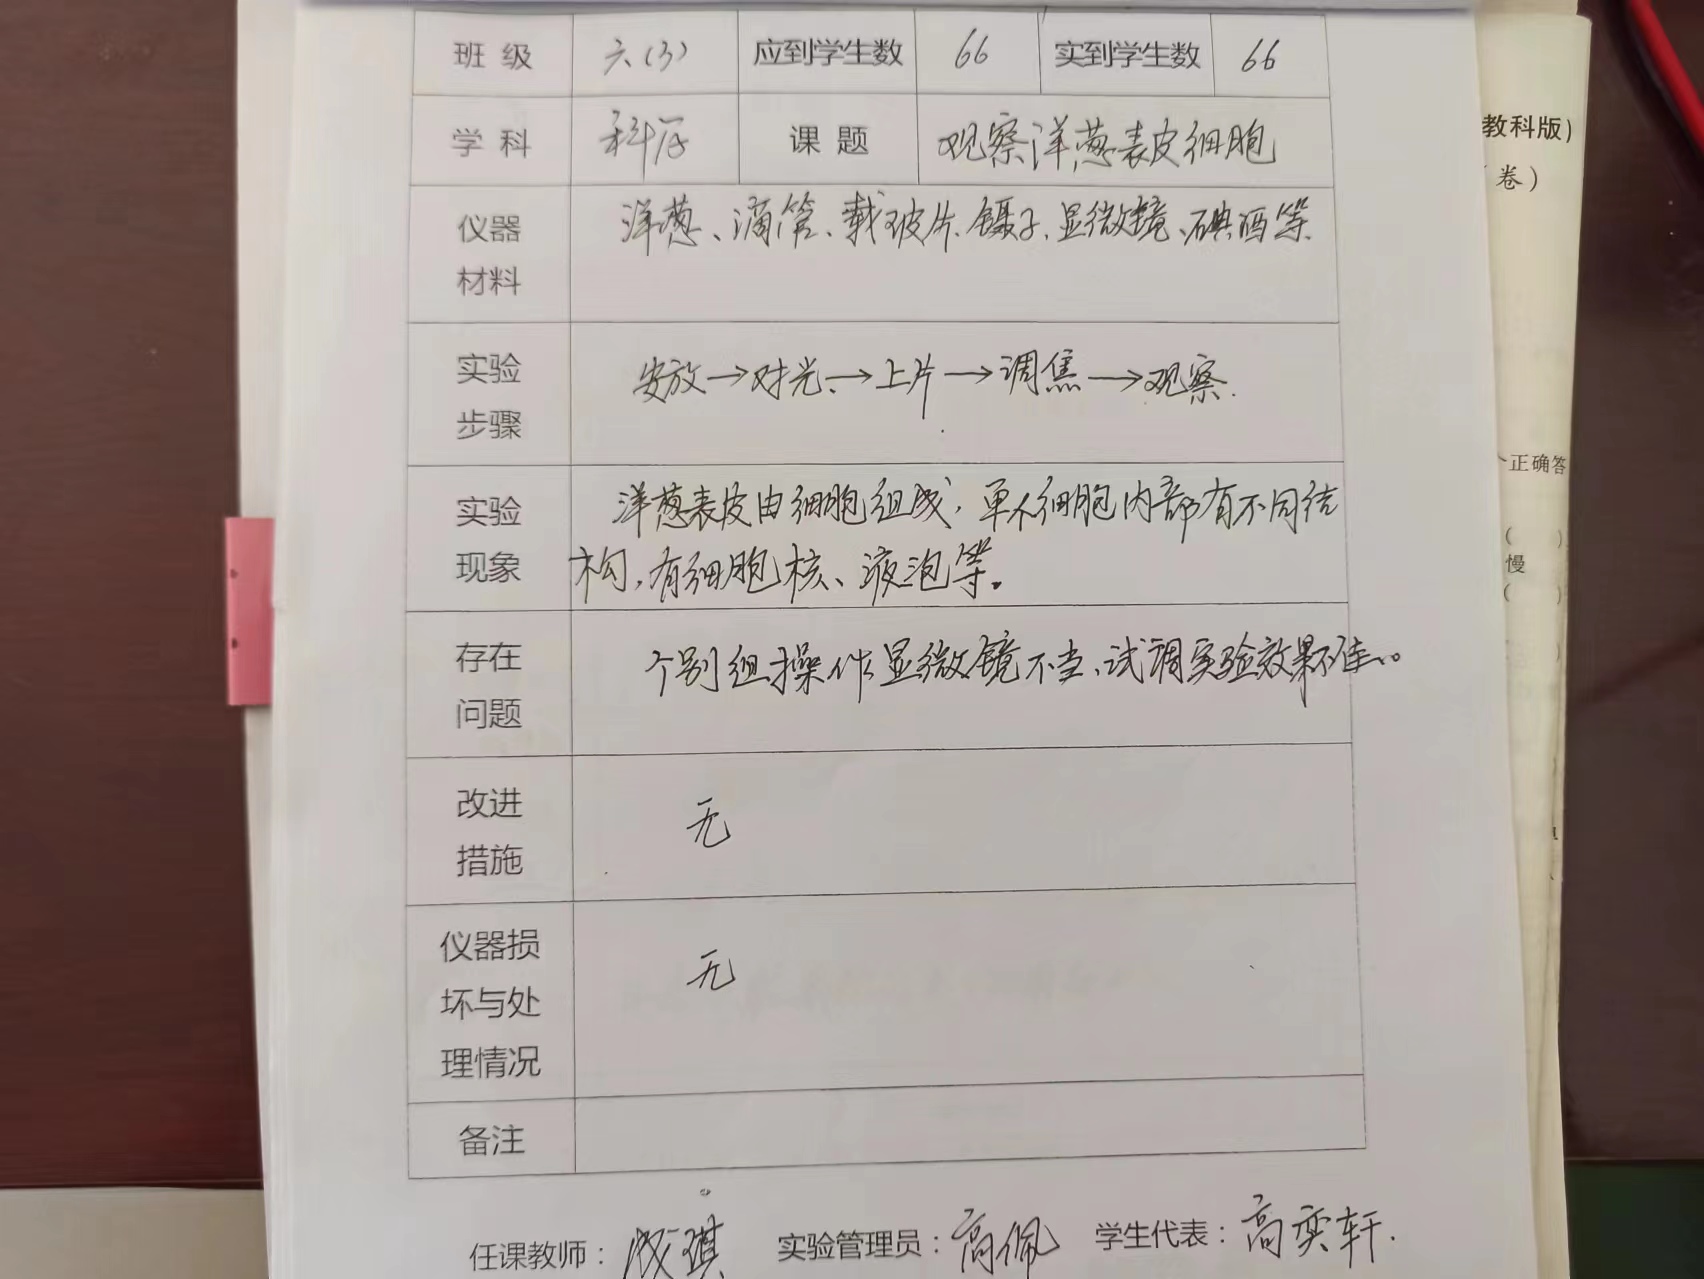 班 级 六(3) 应到学生数 66 实到学生数 66
学 科 科学 课 题 观察洋葱表皮细胞
仪器
材料
洋葱、滴管、载玻片、镊子、显微镜、碘酒等
实验
步骤
安放→对光→上片→调焦→观察.
实验
现象
洋葱表皮由细胞组成,单个细胞内部有不同结
构,有细胞核、液泡等。
存在
问题
个别组操作显微镜不当、试调实验效果不佳。
改进
措施
无
仪器损
坏与处
理情况
无
备注
任课教师: 琪 实验管理员:高佩 学生代表:高奕轩.
教科版)
卷)
个正确答
( )
慢
( )